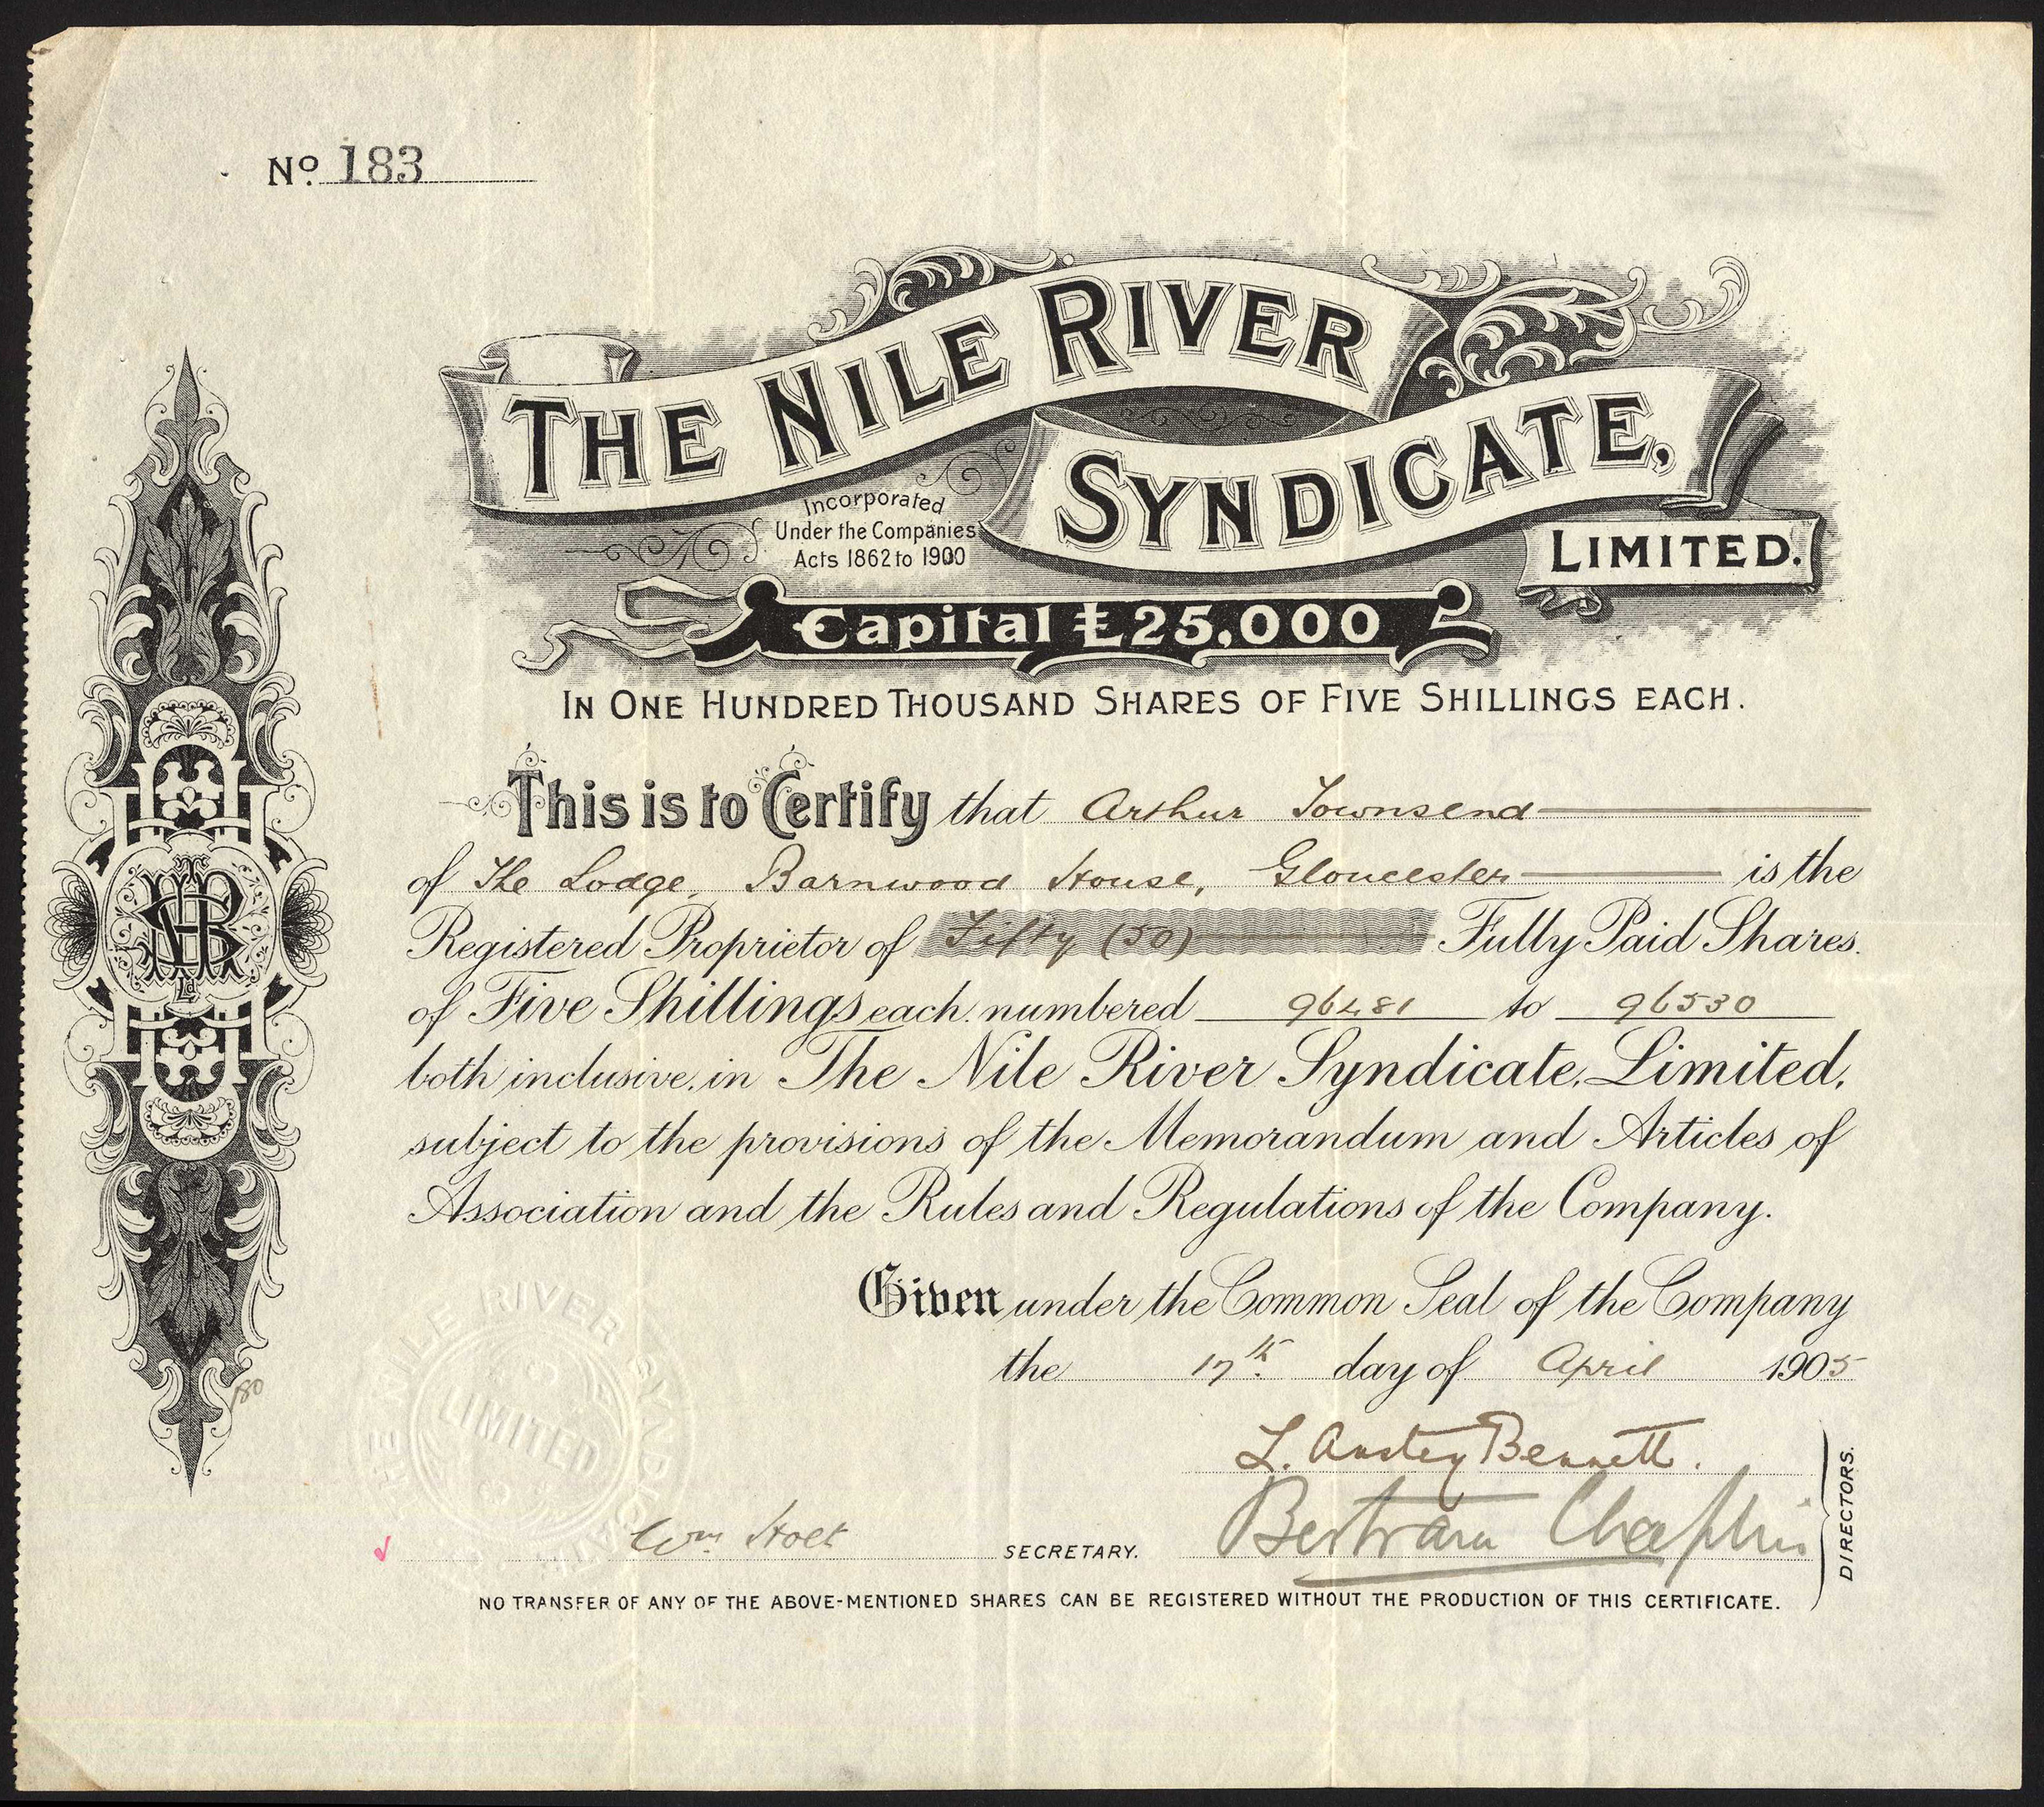 No. 183
THE NILE RIVER
SYNDICATE,
LIMITED.
Incorporated
Under the Companies
Acts 1862 to 1900
Capital £25,000
IN ONE HUNDRED THOUSAND SHARES OF FIVE SHILLINGS EACH.
This is to Certify that Arthur Townsend
of The Lodge, Barnwood House, Gloucester is the
Registered Proprietor of Fifty (50) Fully Paid Shares.
of Five Shillings each numbered 96481 to 96530
both inclusive, in The Nile River Syndicate, Limited,
subject to the provisions of the Memorandum and Articles of
Association and the Rules and Regulations of the Company.
Given under the Common Seal of the Company
the 17th day of April 1905
L. Anstey Bennett.
Bertram Chaplin
DIRECTORS.
Wm. Holt SECRETARY.
THE NILE RIVER SYNDICATE
LIMITED
180
NO TRANSFER OF ANY OF THE ABOVE-MENTIONED SHARES CAN BE REGISTERED WITHOUT THE PRODUCTION OF THIS CERTIFICATE.